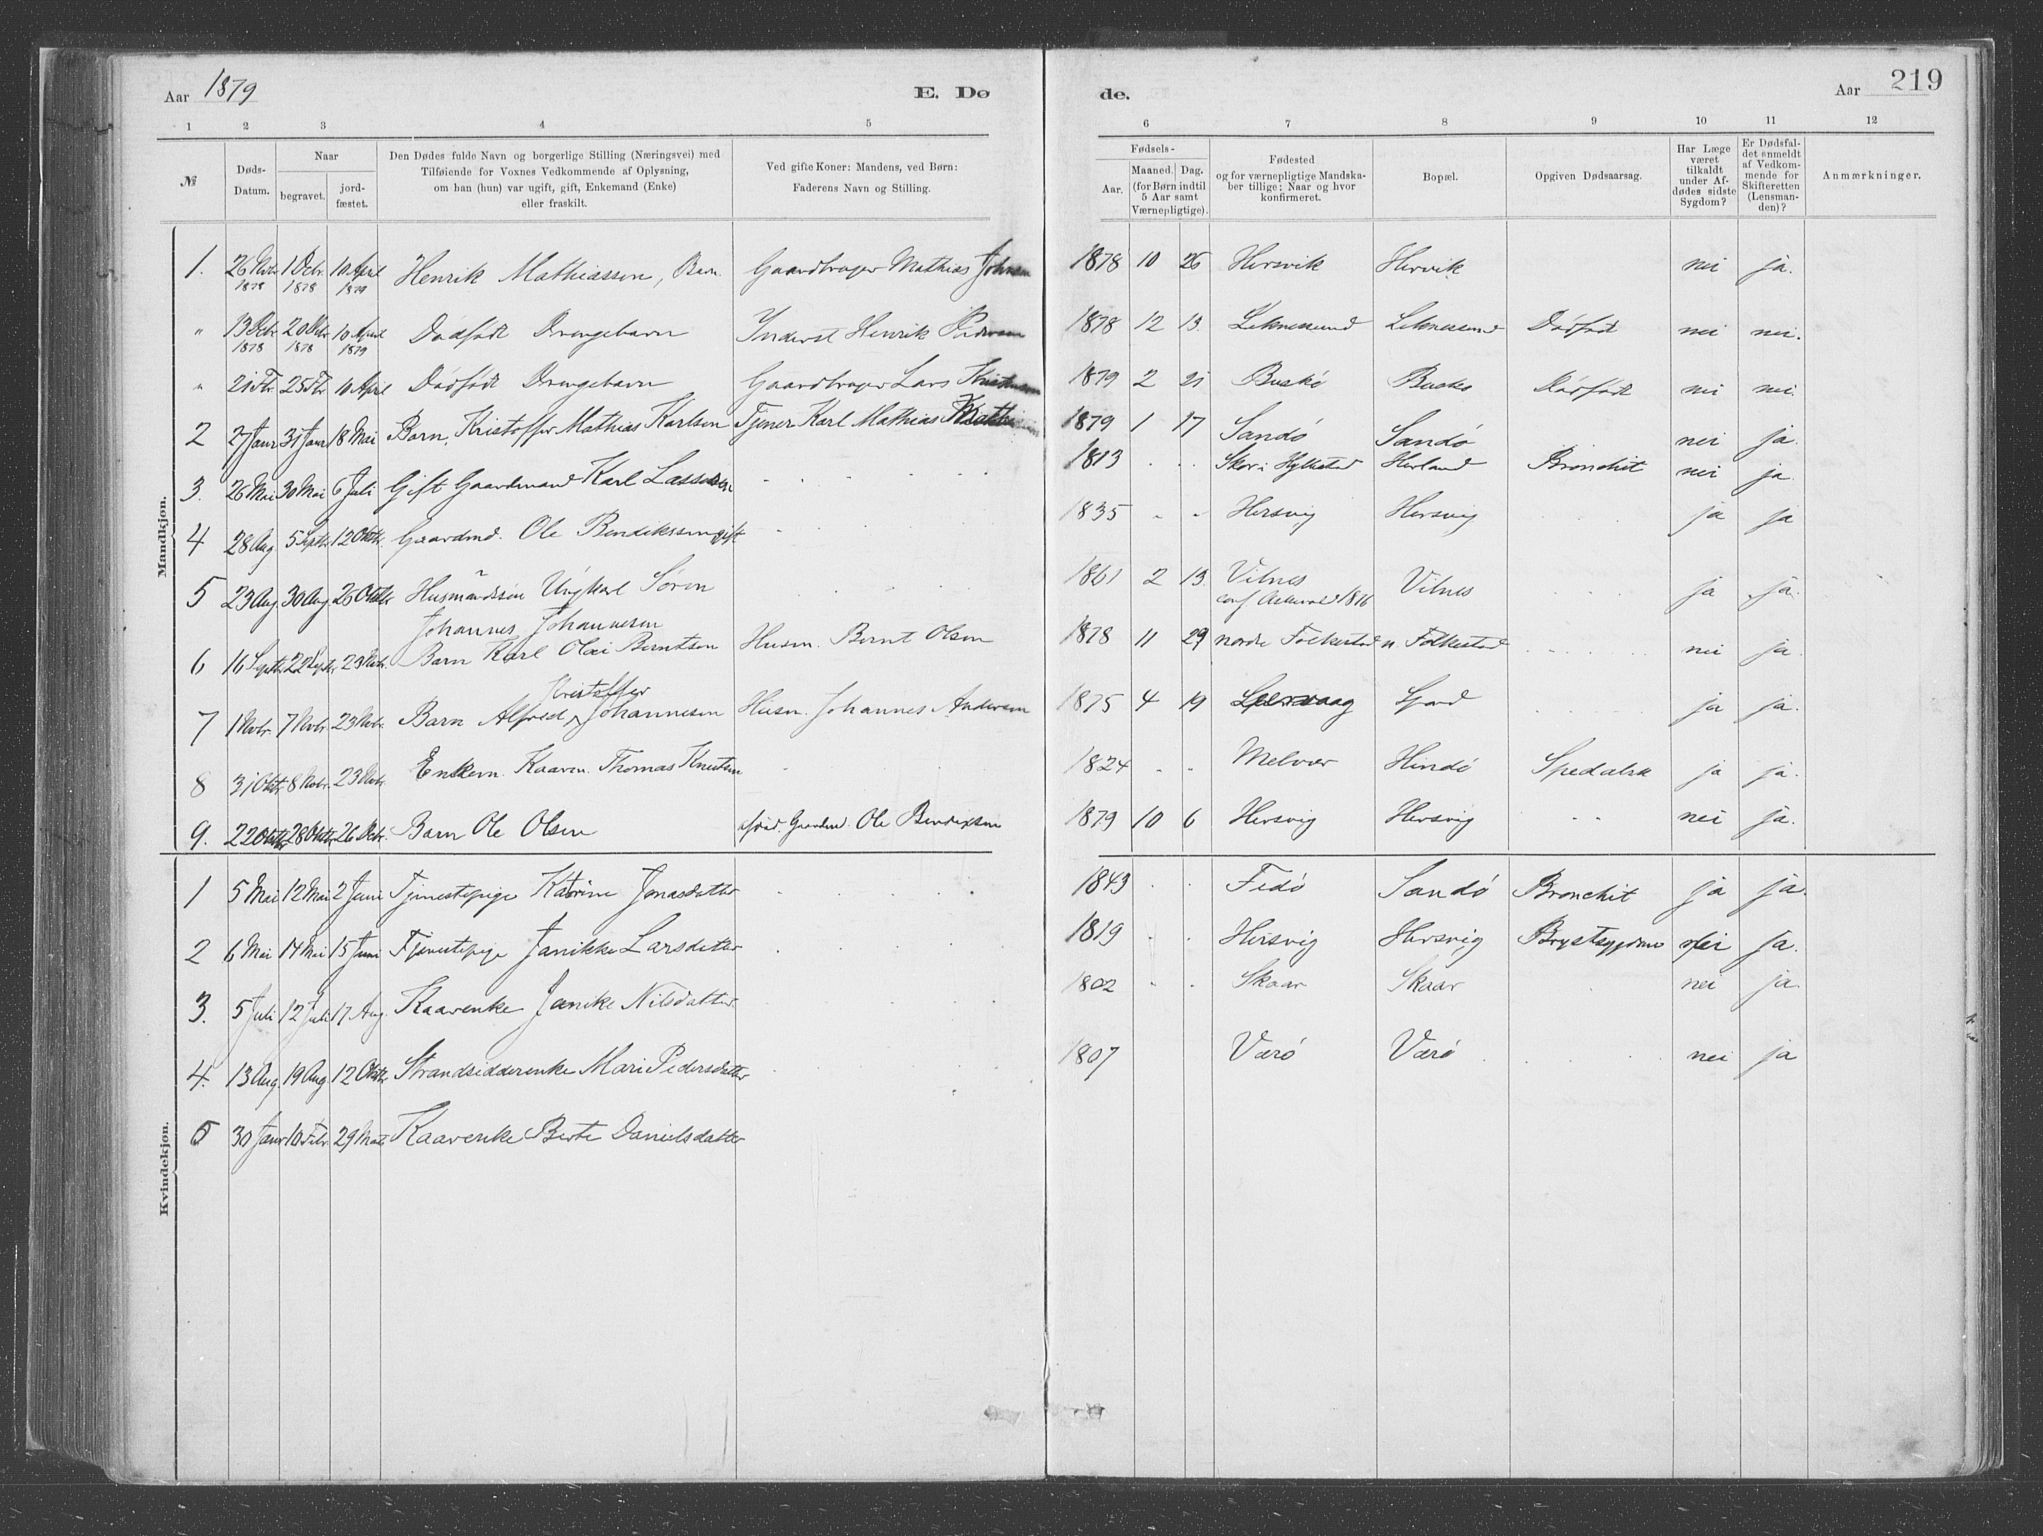 Aar 1879 E. Dø de. Aar 219
1 2 3 4 5 6 7 8 9 10 11 12
№
Døds-Datum.
Naar
begravet.
jord-fæstet.
Den Dødes fulde Navn og borgerlige Stilling (Næringsvei) med
Tilføiende for Voxnes Vedkommende af Oplysning,
om han (hun) var ugift, gift, Enkemand (Enke)
eller fraskilt.
Ved gifte Koner: Mandens, ved Børn:
Faderens Navn og Stilling.
Fødsels-
Aar.
Maaned. Dag.
(for Børn indtil
5 Aar samt
Værnepligtige).
Fødested
og for værnepligtige Mandska-
ber tillige: Naar og hvor
konfirmeret.
Bopæl.
Opgiven Dødsaarsag.
Har Læge
været
tilkaldt
under Af-
dødes sidste
Sygdom?
Er Dødsfal-
det anmeldt
af Vedkom-
mende for
Skifteretten
(Lensman-
den)?
Anmærkninger.
Mandkjøn.
1. 26 Nvbr 1878 1 Dcbr 1878 10 April 1879 Henrik Mathiassen, Barn Gaardbruger Mathias Johnsen 1878 10 26 Hersvik Hervik nei ja.
" 13 Dcbr 1878 20 Dcbr 1878 10 April 1879 Dødfødt Drengebarn Inderst Henrik 1878 12 13 Leknessund Leknessund Dødfødt nei nei.
" 21 Fbr. 25 Fbr 10 April Dødfødt Drengebarn Gaardbruger Lars 1879 2 21 Buskø Buskø Dødfødt nei nei.
2 27 Janr 31 Janr 18 Mai Barn, Kristoffer Mathias Karlsen Tjener Karl Mathias 1879 1 17 Sandø Sandø nei ja.
3. 26 Mai 30 Mai 6 Juli Gift Gaardmand Karl Lassesen 1813 Skor i Hyllestad Herland Bronchit nei ja.
4 28 Aug. 5 Septbr 12 Oktbr. Gaardmd. Ole Bendikssen gift 1835 Hersvig Hersvig ja ja
5 23 Aug. 30 Aug 26 Oktbr Husmandssøn Ungkarl Søren
Johannes Johannesen 1861 2 13. Vilnes
conf Askevold 1876 Vilnes ja ja.
6 16 Septbr 22 Septbr. 23 Nvbr. Barn Karl Olai Berntsen Husm. Bernt Olsen 1878 11 29 nordre Folkestad n. Folkestad nei ja.
7 1 Nvbr. 7 Nvbr. 23 Nvbr. Barn Alfred Kristoffer Johannesen Husm. Johannes Andersen 1875 4 19 ja ja.
8 31 Oktbr 8 Nvbr. 23 Nvbr. Enkem. Kaarm. Thomas Knutsen 1824 Melvær Hindø Spedalsk ja ja.
9. 22 Oktbr 28 Oktbr. 26 Dcbr. Barn Ole Olsen Gaardmd. Ole Bendixsen 1879 10 6 Hersvig Hersvig nei ja.
Kvindekjøn.
1 5 Mai 12 Mai 2 Juni Tjenestepige Katrine Jonasdatter 1843 Fedø Sandø Bronchit ja ja.
2 6 Mai 14 Mai 15 Juni Tjenestepige Janikke Larsdatter 1819 Hersvig Hersvig Brystsygdom nei ja.
3. 5 Juli 12 Juli 17 Aug. Kaarenke Janike Nilsdatter. 1802 Skaar Skaar nei ja.
4. 13 Aug. 19 Aug 12 Oktbr. Strandsidderenke Mari Pedersdatter 1807 Værø Værø nei ja
5 30 Janr 10 Febr. 29 Kaarenke Berte Danielsdatter